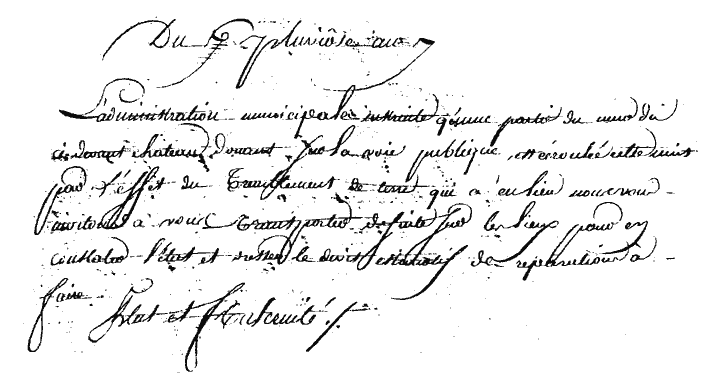 Du 7 pluviôse an 7
L'administration municipale instruite qu'une partie du mur du
ci devant chateau donant sur la voie publique est écroulé cette nuit
par l'effet du tremblement de terre qui a eu lieu nous vous
invitons a vous transporter de suite sur les lieux pour en
constater l'état et dresser le devis estimatif des reparations a
faire.
Salut et fraternité